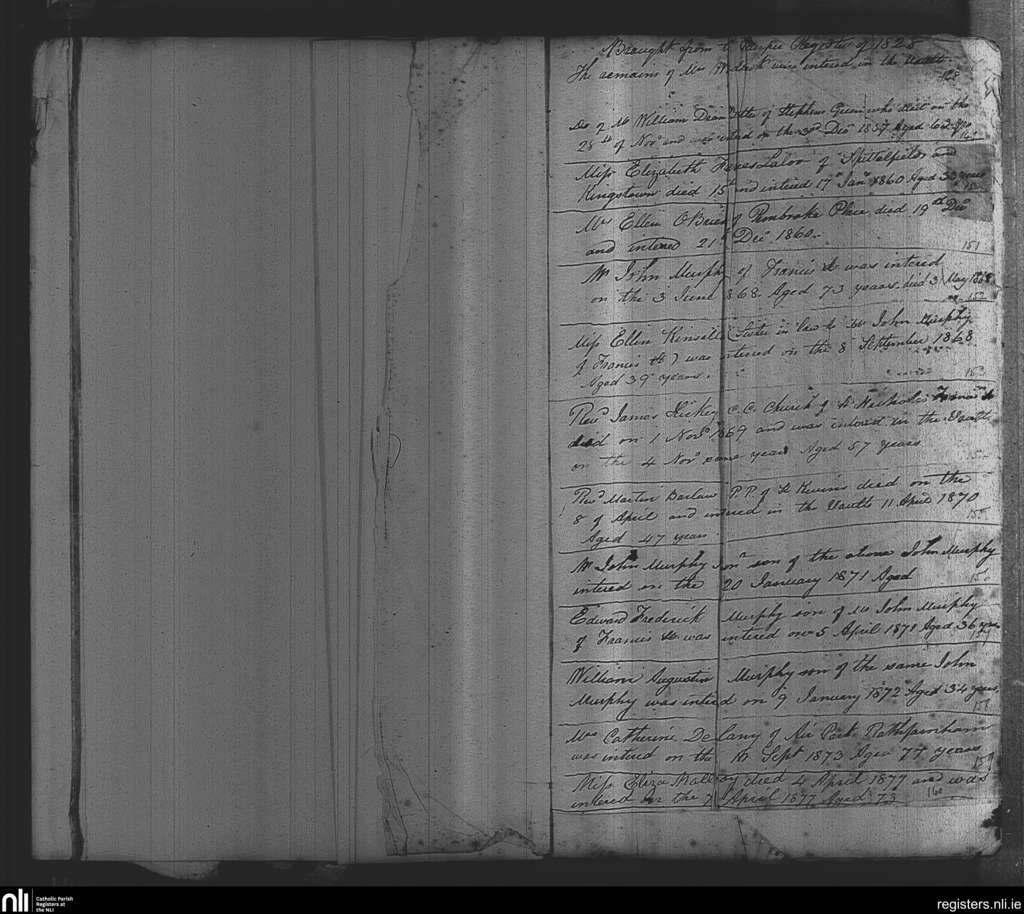 Brought from Register of 1825
The remains of Mrs were interred in the Vaults
148
Do of Mr William Dean of Stephens Green who died on the
28th of Novr and interred on the 3rd Decr 1857 Aged
Miss Elizabeth Lalor of Spittalfields and
Kingstown died 15th and interred 17th Jany 1860 Aged years
Mrs Ellen O'Brien of Pembroke Place died 19th Decr
and interred 21st Decr 1860
151
Mr John Murphy of Francis St was interred
on the 3 June 1868 Aged 73 yeaars died 3 May 1868
152
Miss Ellen Kinsella (Sister in law to Mr John Murphy
of Francis St) was interred on the 8 September 1868
Aged 39 years.
153
Revd James Hickey C.C. Church of St Nicholas Francis St
died on 1 Novr 1869 and was interred in the Vaults
on the 4 Novr same year Aged 57 years
Revd Martin Barlow P.P. of St Kevins died on the
8 of April and interred in the Vaults 11 April 1870
Aged 47 years
155
Mr John Murphy Junr son of the above John Murphy
interred on the 20 January 1871 Aged
Edward Frederick Murphy son of Mr John Murphy
of Francis St was interred on 5 April 1871 Aged 36 yrs
157
William Augustin Murphy son of the same John
Murphy was interred on 9 January 1872 Aged 34 years
158
Mrs Catherine Delany of Air Park Rathfarnham
was interred on the Sept 1873 Aged 77 years
159
Miss Eliza died 4 April 1877 and was
interred on the 7 April 1877 Aged 73
160
nli
Catholic Parish
Registers at
the NLI
registers.nli.ie